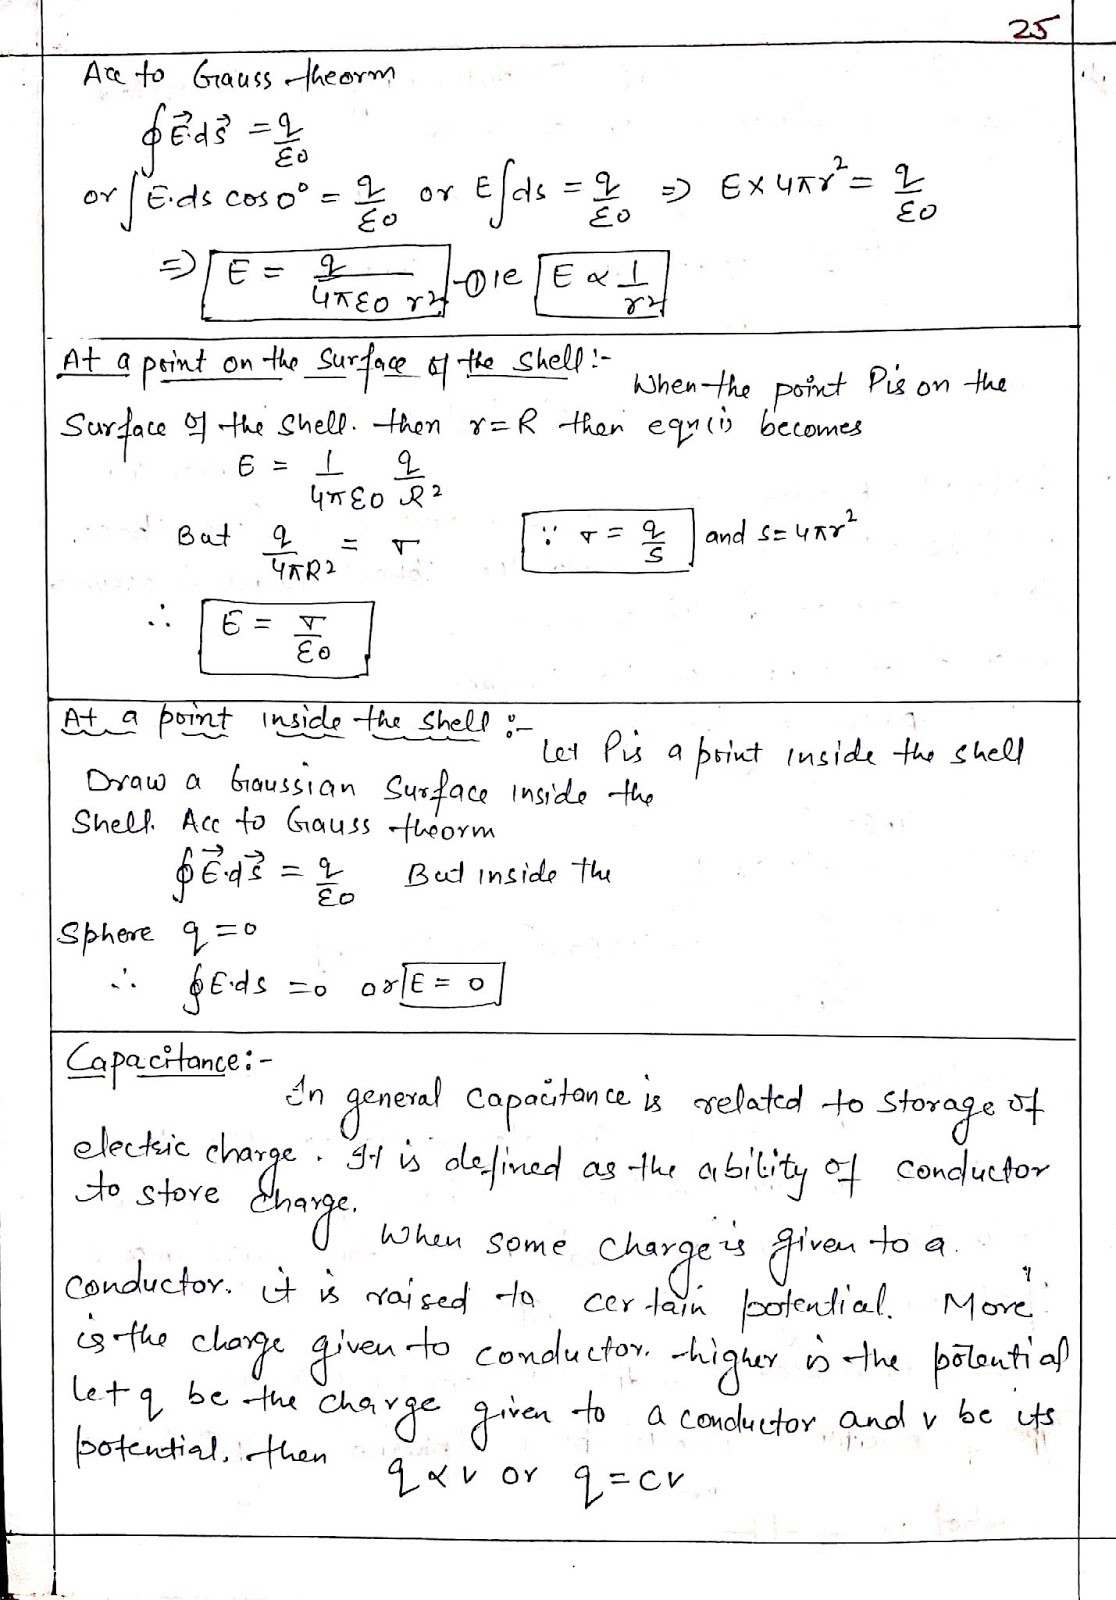 25
Acc to Gauss theorm
∮E⃗.ds⃗ = q/ε0
or ∫E.ds cos0° = q/ε0 or E∫ds = q/ε0 ⇒ E×4πr² = q/ε0
⇒ E = q/4πε0 r² -① ie E ∝ 1/r²
At a point on the Surface of the Shell:-
When the point P is on the
Surface of the Shell. then r=R then eqn(i) becomes
E = 1/4πε0 q/R²
But q/4πR² = σ ∵ σ = q/S and S=4πr²
∴ E = σ/ε0
At a point inside the shell :-
Let P is a point inside the shell
Draw a Gaussian Surface inside the
Shell. Acc to Gauss theorm
∮E⃗.ds⃗ = q/ε0 But inside the
Sphere q=0
∴ ∮E.ds =0 or E = 0
Capacitance:-
In general capacitance is related to storage of
electric charge. It is defined as the ability of conductor
to store charge.
When some charge is given to a
conductor. it is raised to certain potential. More
is the charge given to conductor. higher is the potential
let q be the charge given to a conductor and v be its
potential, then
q ∝ v or q = cv